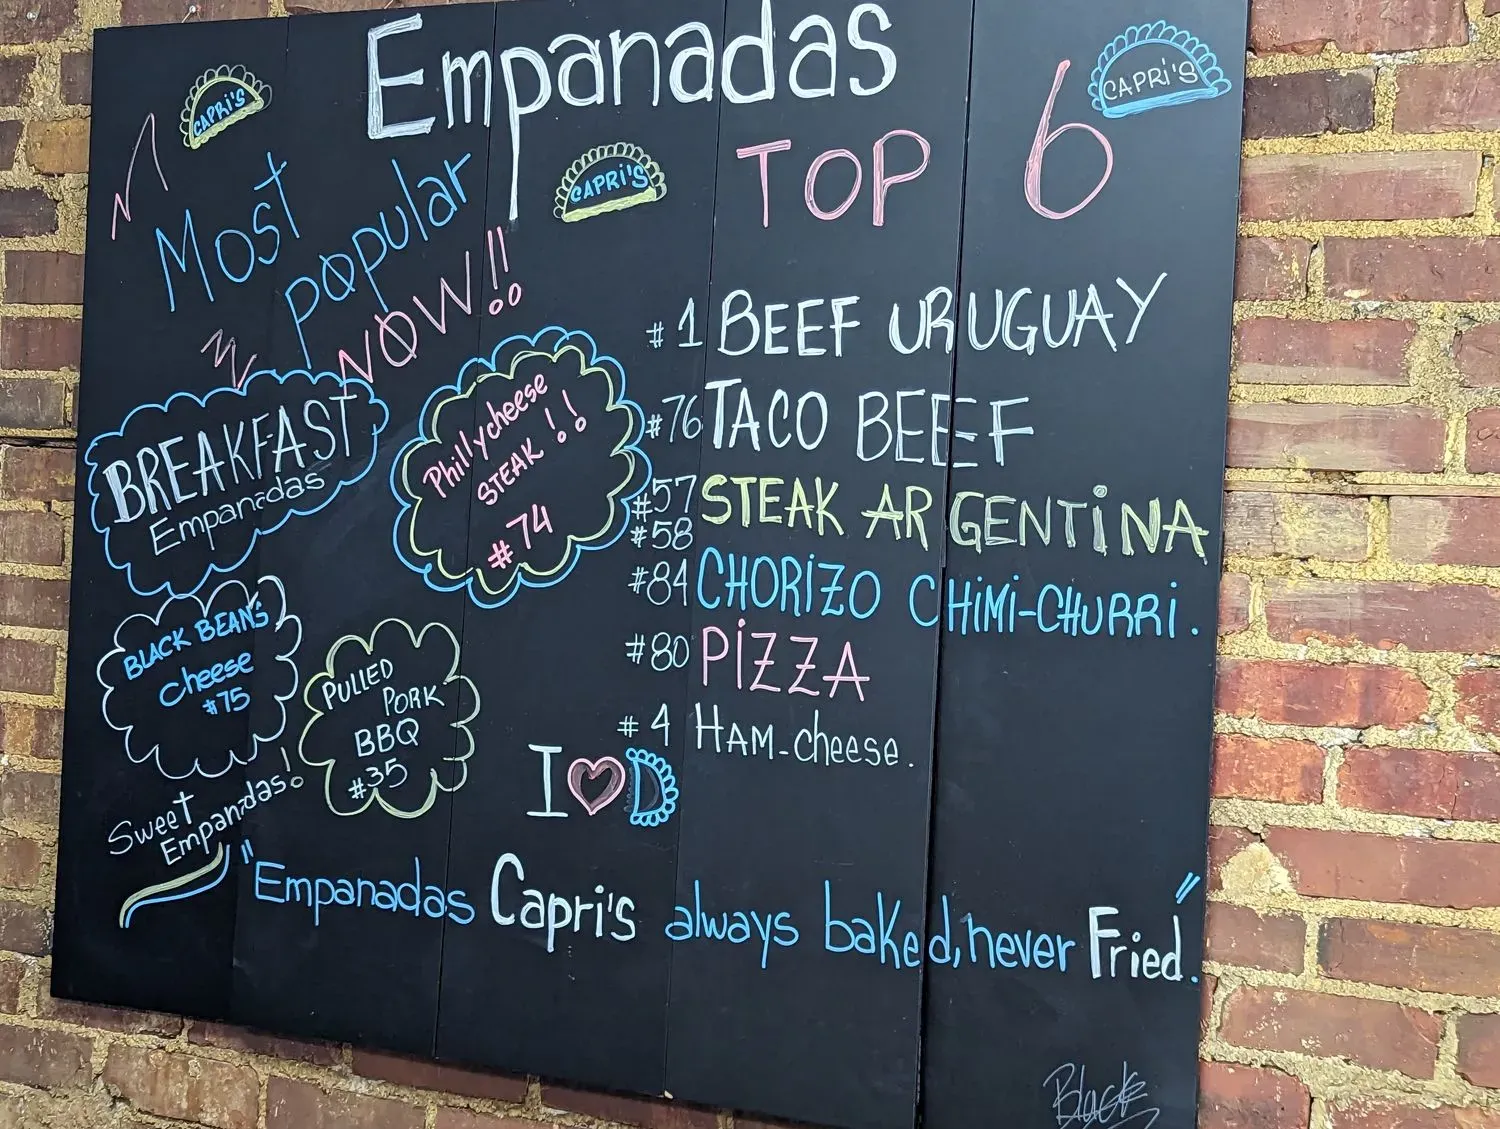 Empanadas
CAPRI'S
CAPRI'S
CAPRI'S
TOP 6
Most
popular
NOW!!
BREAKFAST
Empanadas
Phillycheese
STEAK!!
#74
BLACK BEANS
cheese
#75
PULLED
PORK
BBQ
#35
Sweet
Empanadas!
#1 BEEF URUGUAY
#76 TACO BEEF
#57 STEAK ARGENTINA
#58
#84 CHORIZO CHIMI-CHURRI.
#80 PIZZA
#4 HAM-cheese.
I
"Empanadas Capri's always baked, never Fried."